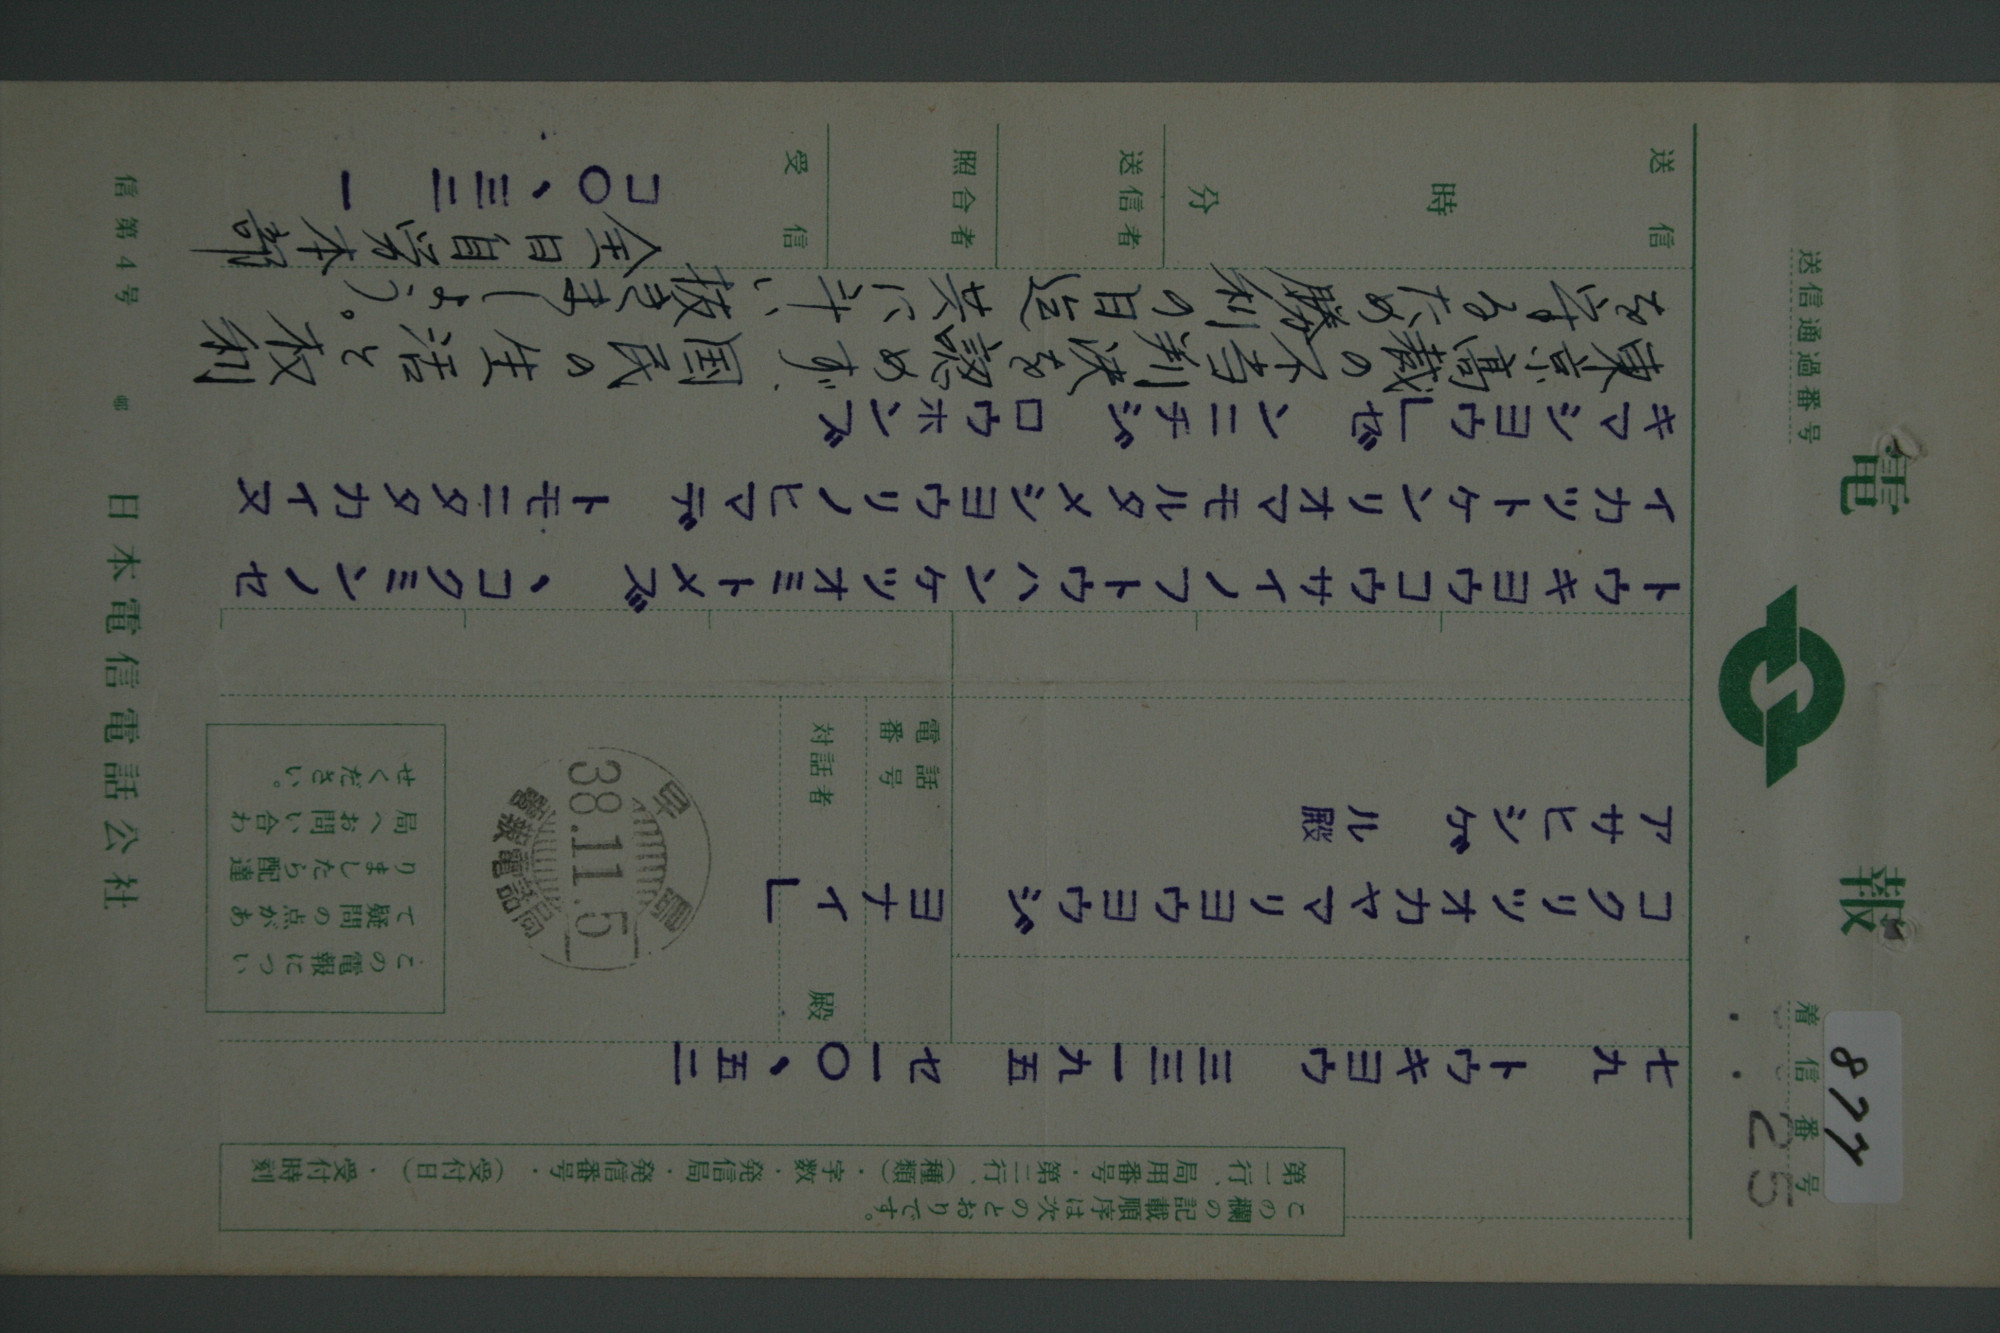 電報
送信通過番号
着信番号
25
877
この欄の記載順序は次のとおりです。
第一行、局用番号・第二行、(種類)・字数・発信局・発信番号・(受付日)・受付時刻
七九 トウキヨウ 三三一九五 セ一〇、五二
コクリツオカヤマリヨウヨウジヨナイ」
アサヒシゲル殿
電話番号
対話者 殿
早島
38.11.5
電報電話局
この電報につい
て疑問の点があ
りましたら配達
局へお問い合わ
せください。
トウキヨウコウサイノフトウハンケツオミトメズ、コクミンノセ
イカツトケンリオマモルタメシヨウリノヒマデ トモニタタカイヌ
キマシヨウ」ゼンニチジロウホンブ
東京高裁の不当判決を認めず、国民の生活と权利
を守るため勝利の日迄共に斗い抜きましょう。
全日自労本部
コ〇、三二 一
送信
時
分
送信者
照合者
受信
信第4号
日本電信電話公社